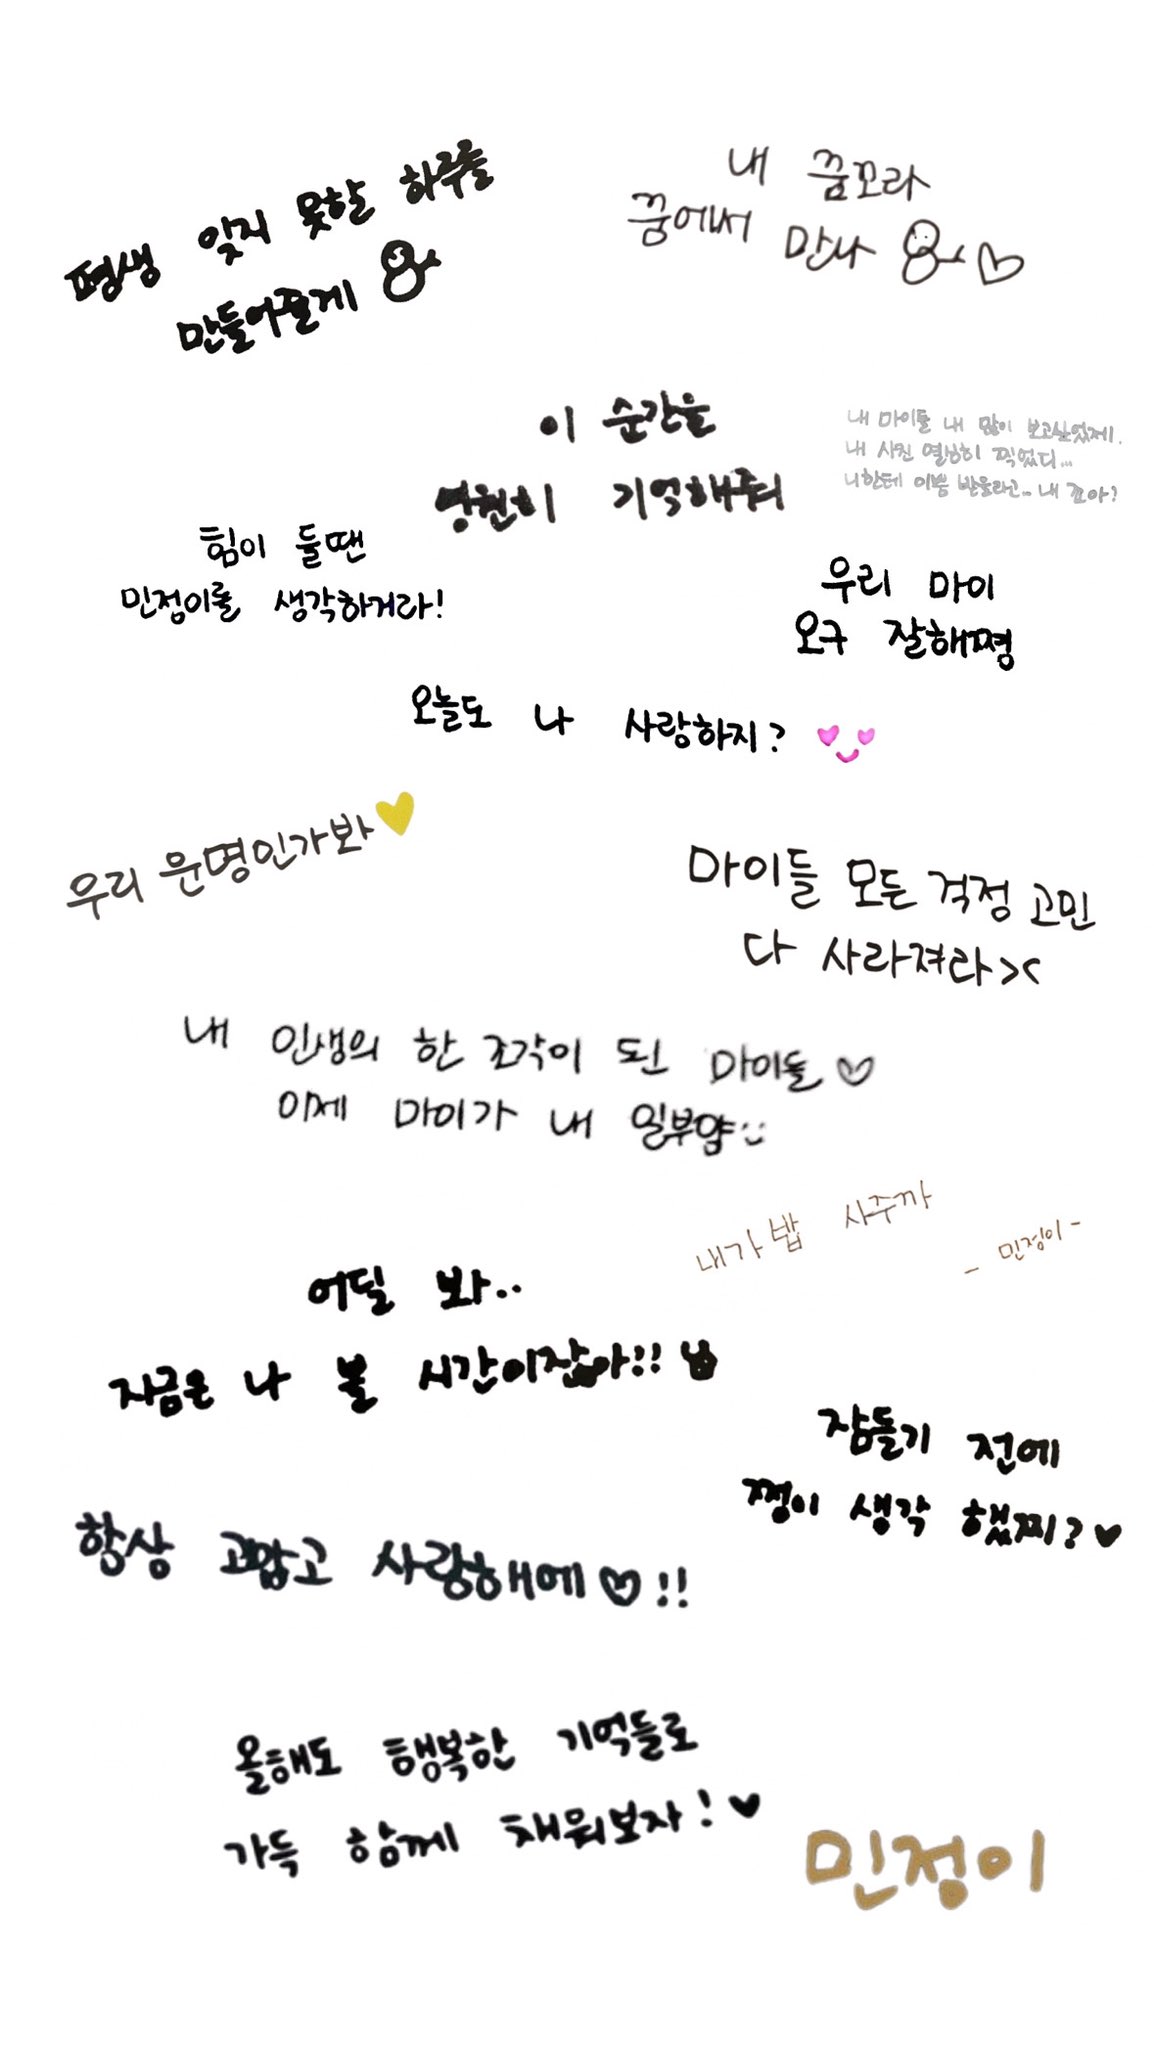 평생 잊지 못할 하루를
만들어줄게
내 꿈꼬라
꿈에서 만나
이 순간을
영원히 기억해줘
내 마이들 내 많이 보고싶었제.
내 사진 열심히 찍었디...
니한테 이쁨 받을라고.. 내 꼬아?
힘이 들땐
민정이를 생각하거라!
우리 마이
오구 잘해쪙
오늘도 나 사랑하지?
우리 운명인가봐
마이들 모든 걱정 고민
다 사라져라><
내 인생의 한 조각이 된 마이들
이제 마이가 내 일부얍
내가 밥 사주까
- 민정이 -
어딜 봐..
지금은 나 볼 시간이잖아!!
잠들기 전에
쩡이 생각 했찌?
항상 고맙고 사랑해에 !!
올해도 행복한 기억들로
가득 함께 채워보자!
민정이